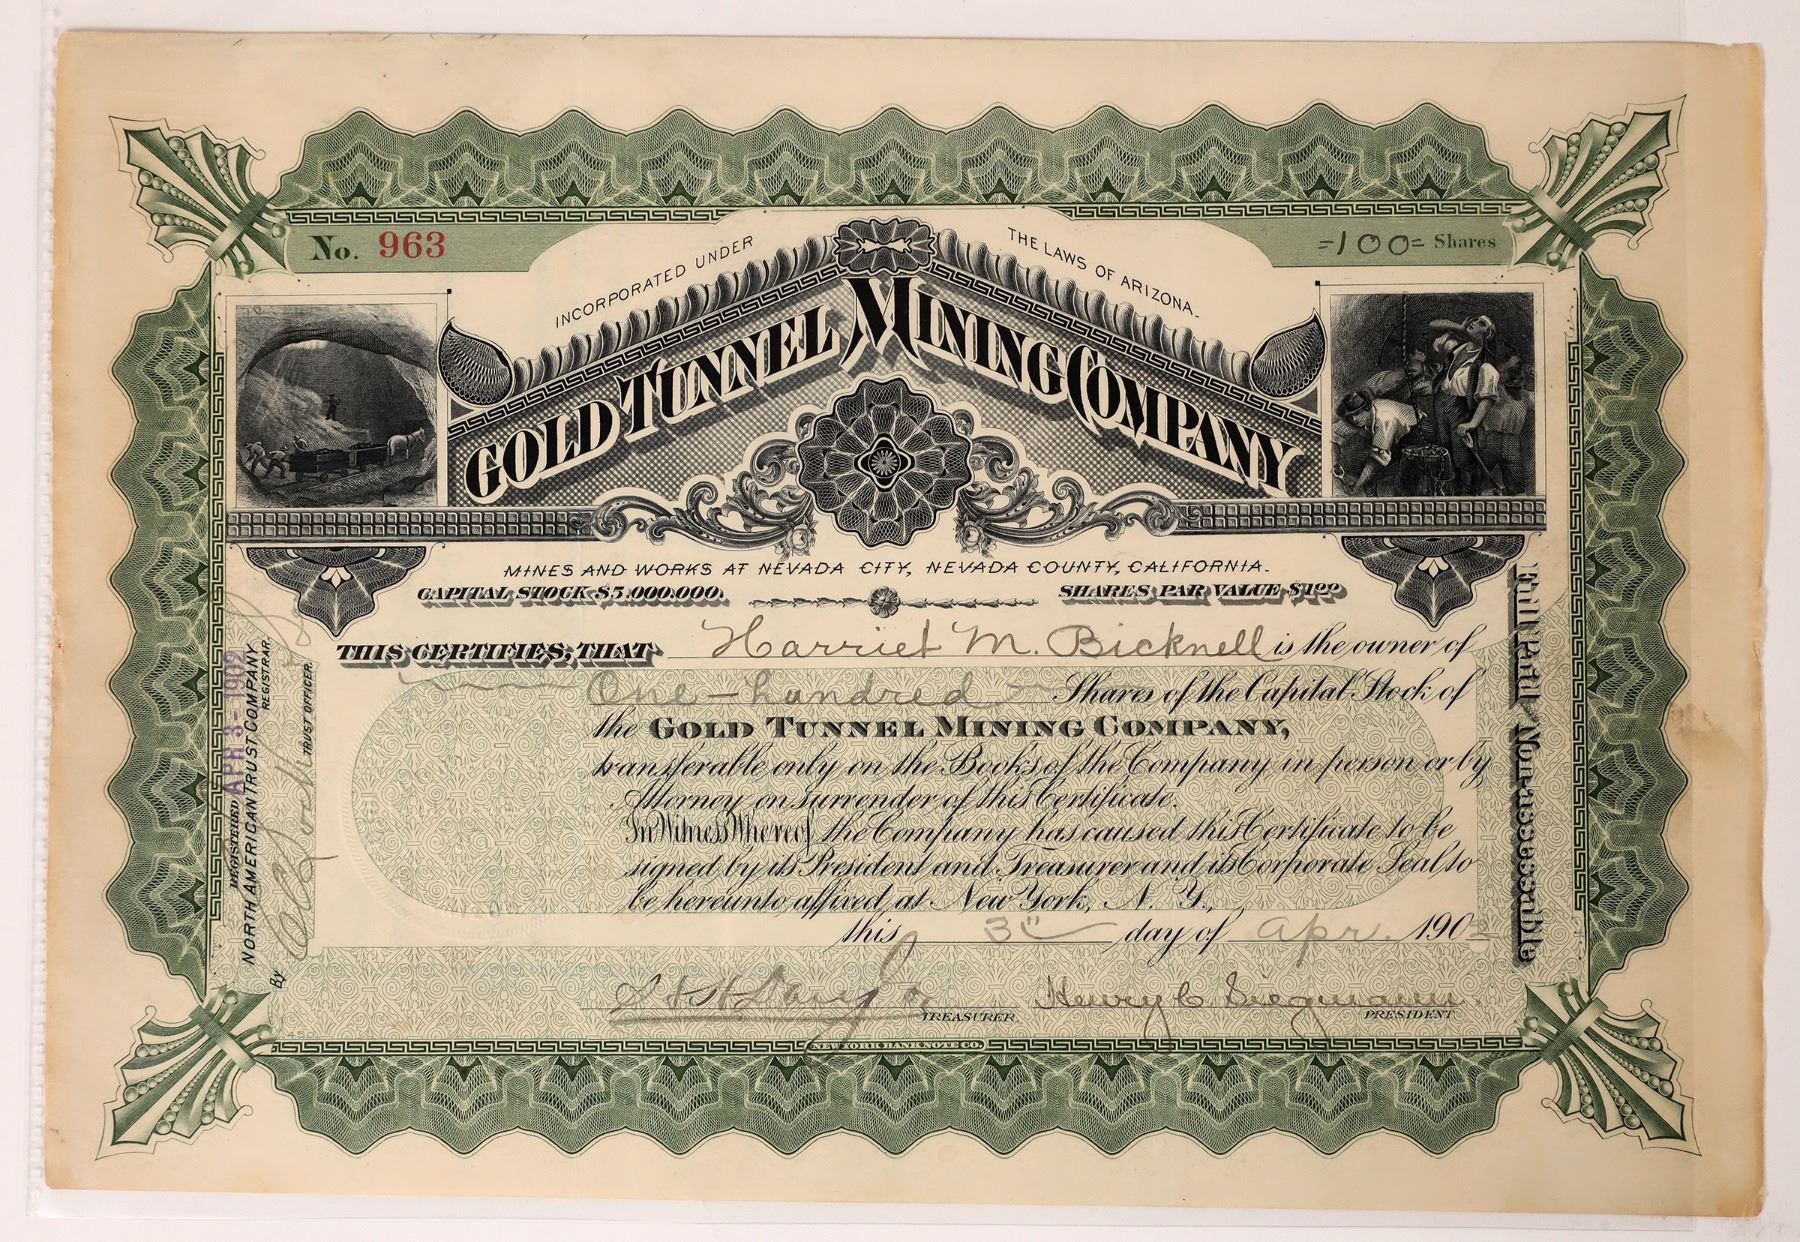 No. 963
=100= Shares
INCORPORATED UNDER THE LAWS OF ARIZONA.
GOLD TUNNEL MINING COMPANY
MINES AND WORKS AT NEVADA CITY, NEVADA COUNTY, CALIFORNIA.
CAPITAL STOCK $5.000.000. SHARES PAR VALUE $1.00
THIS CERTIFIES, THAT Harriet M. Bicknell is the owner of
One-hundred Shares of the Capital Stock of
the GOLD TUNNEL MINING COMPANY,
transferable only on the Books of the Company in person or by
Attorney on surrender of this Certificate.
In Witness Whereof, the Company has caused this Certificate to be
signed by its President and Treasurer and its Corporate Seal to
be hereunto affixed, at New York, N. Y.,
this 3rd day of Apr. 1902
TREASURER.
Henry C. Siegmann.
PRESIDENT.
NEW YORK BANK NOTE CO.
REGISTERED APR 3 - 1902
NORTH AMERICAN TRUST COMPANY
REGISTRAR.
By
TRUST OFFICER.
Full Paid Non-assessable